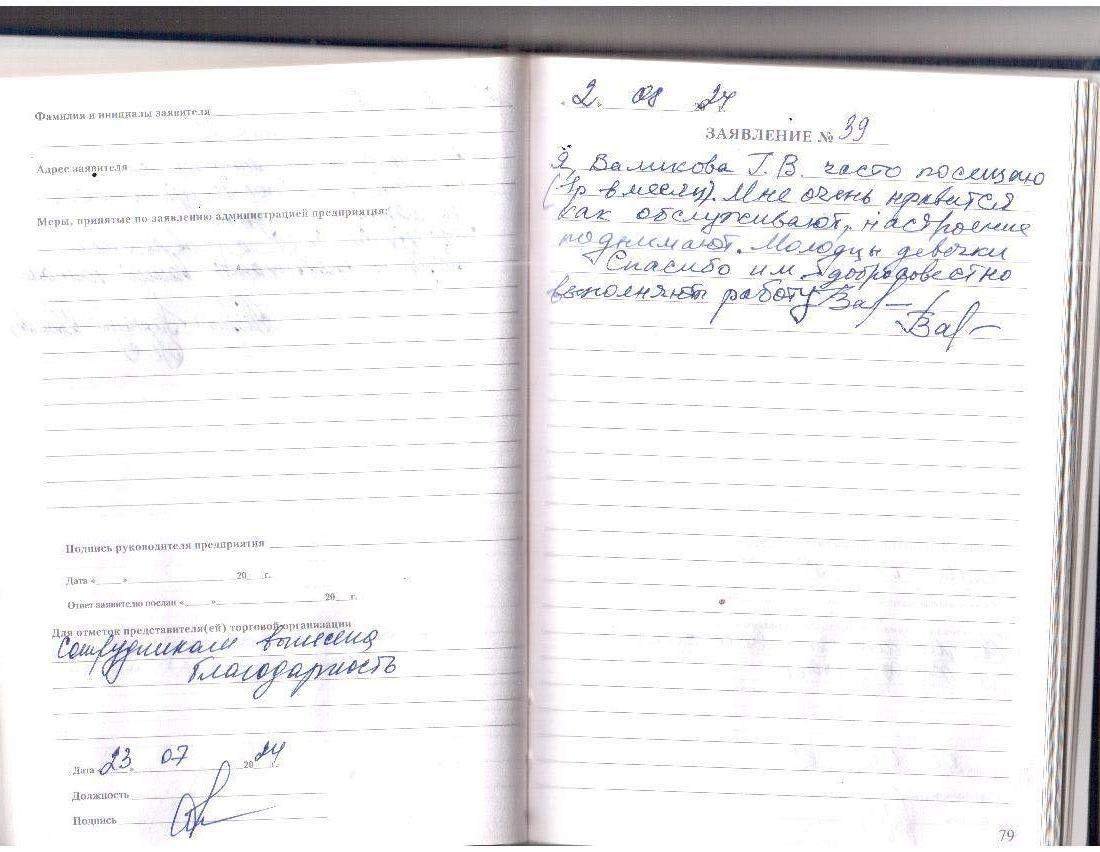 Фамилия и инициалы заявителя
Адрес заявителя
Меры, принятые по заявлению администрацией предприятия:
Подпись руководителя предприятия
Дата « » 20 г.
Ответ заявителю послан « » 20 г.
Для отметок представителя(ей) торговой организации
Сотрудникам вынесена
благодарность
Дата «23» 07 2024 г.
Должность
Подпись
2. 08 24
ЗАЯВЛЕНИЕ № 39
Я, Валикова Г. В. часто посещаю
(1р в месяц). Мне очень нравится
как обслуживают, настроение
поднимают. Молодцы девочки
Спасибо им добросовестно
выполняют работу
79